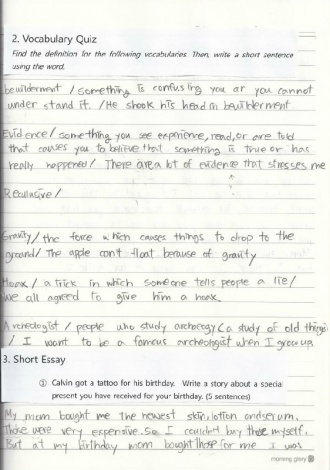 2. Vocabulary Quiz
Find the definition for the following vocabularies. Then, write a short sentence
using the word.
bewilderment / something is confusing you or you cannot
under stand it. / He shook his head in bewilderment.
Evidence / something you see experience, read, or are told
that causes you to believe that something is true or has
really happened / There are a lot of evidence that stresses me
Reclusive /
Gravity / the force which causes things to drop to the
ground / The apple can't float because of gravity
Hoax / a trick in which someone tells people a lie /
we all agreed to give him a hoax.
Archeologist / people who study archeogy (a study of old things)
/ I want to be a famous archeologist when I grow up.
3. Short Essay
① Calvin got a tattoo for his birthday. Write a story about a special
present you have received for your birthday. (5 sentences)
My mom bought me the newest skin, lotion and serum.
Those were very expensive. So I couldn't buy those myself.
But at my birthday mom bought those for me I was
morning glory